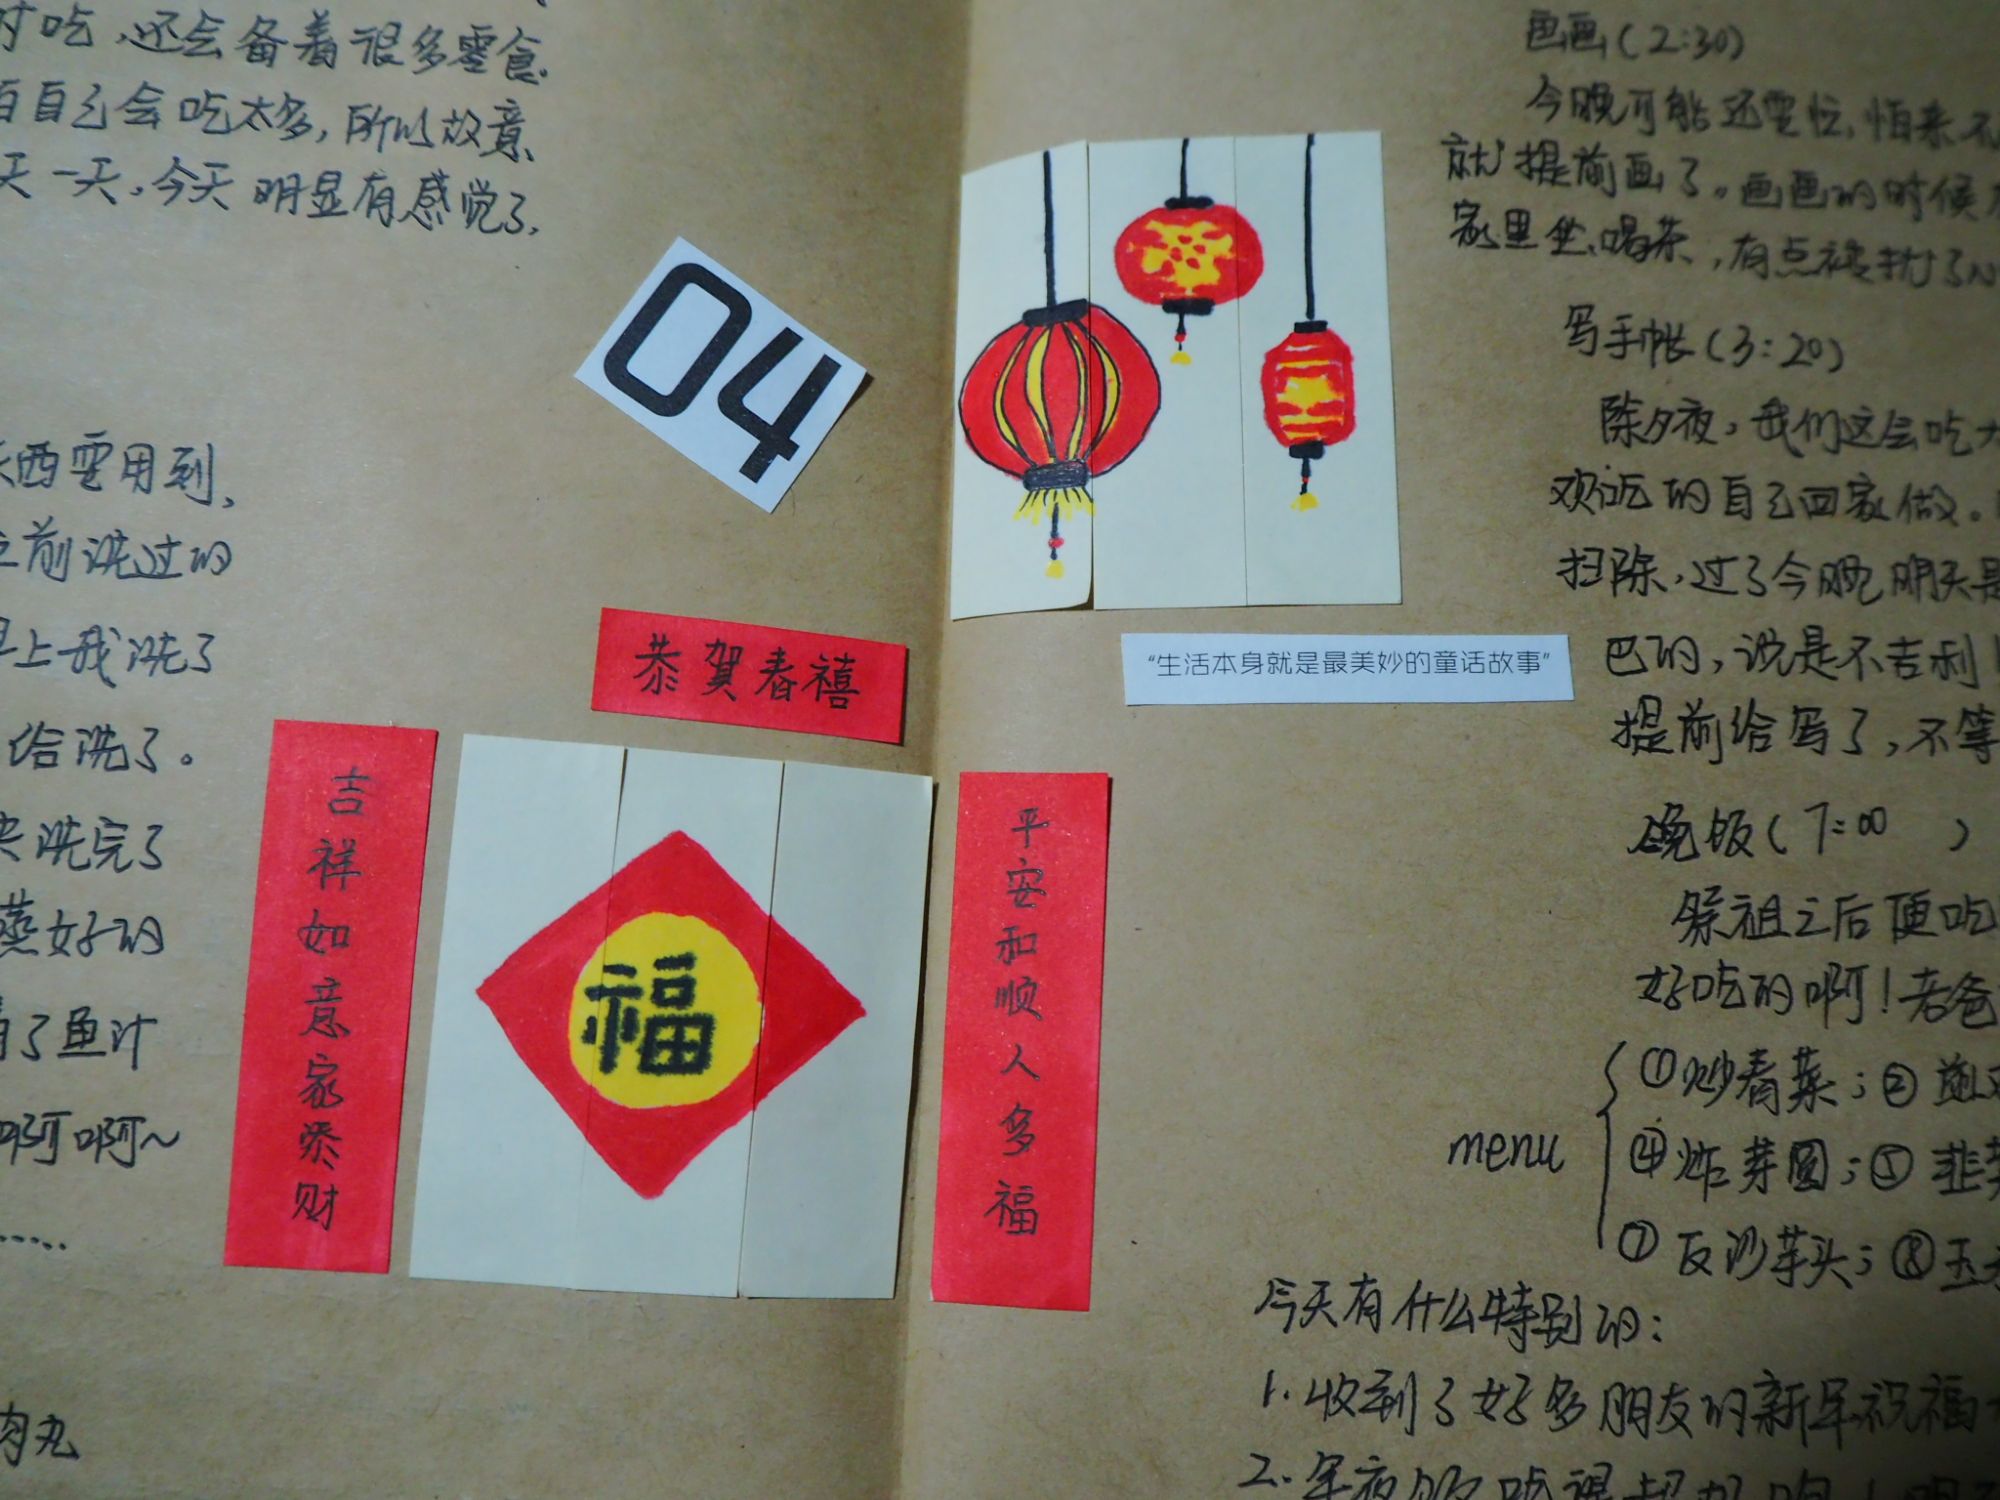 时吃，还会备着很多零食.
自己会吃太多，所以故意
天一天，今天明显有感觉了.
西要用到，
前洗过的
早上我洗了
给洗了。
洗完了
蒸好的
了鱼汁
啊啊~
......
肉丸
04
恭贺春禧
吉祥如意家添财
福
平安和顺人多福
“生活本身就是最美妙的童话故事”
画画(2:30)
今晚可能还要忙，怕来不
就提前画了。画画的时候
家里坐、喝茶，有点被扰了
写手帐(3:20)
除夕夜，我们这会吃
欢吃的自己回家做。
扫除，过了今晚明天是
巴的，说是不吉利！
提前给写了，不等
晚饭(7:00 )
祭祖之后便吃
好吃的啊！老爸
menu
①炒春菜；②
④炸芋圆；⑤韭菜
⑦反沙芋头；⑧玉
今天有什么特别的：
1.收到了好多朋友的新年祝福
2.年夜饭吃得超